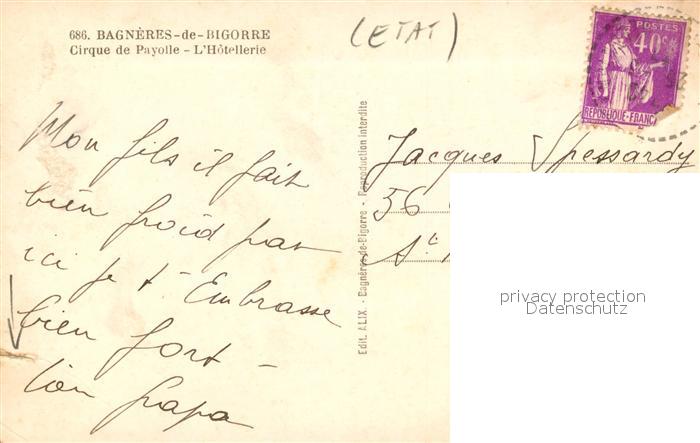 686. BAGNÈRES-de-BIGORRE
Cirque de Payolle - L'Hôtellerie
(ETAT)
POSTES
40c
REPUBLIQUE-FRANC
Mon fils il fait
bien froid par
ici je t'Embrasse
bien fort -
ton papa
Edit. ALIX. - Bagnères-de-Bigorre - Reproduction interdite
Jacques Spessardy
56
St
privacy protection
Datenschutz